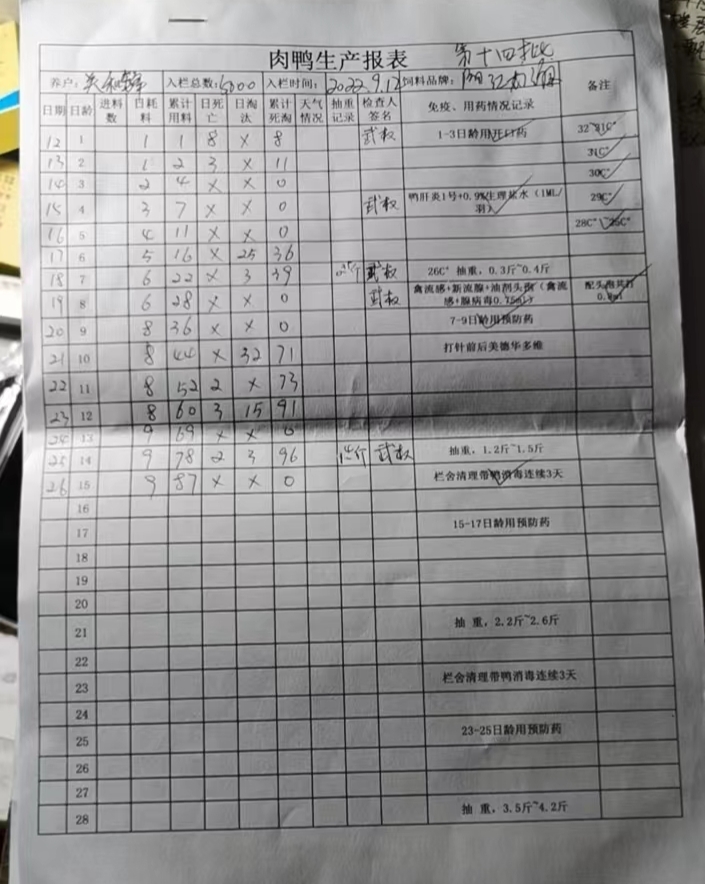 肉鸭生产报表 第十四批
养户: 入栏总数:5000 入栏时间:2022.9.12 饲料品牌: 备注
日期 日龄 进料数 日耗料 累计用料 日死亡 日淘汰 累计死淘 天气情况 抽重记录 检查人签名 免疫、用药情况记录
12 1 1 1 8 × 8 武权 1-3日龄用开口药 32~31C°
13 2 1 2 3 × 11 31C°
14 3 2 4 × × 0 30C°
15 4 3 7 × × 0 武权 鸭肝炎1号+0.9%生理盐水（1ML/羽） 29C°
16 5 4 11 × × 0 28C°~26C°
17 6 5 16 × 25 36
18 7 6 22 × 3 39 武权 26C° 抽重，0.3斤~0.4斤
19 8 6 28 × × 0 武权 禽流感+新流腺+油剂头孢（禽流感+腺病毒0.75ml） 配头孢共打0.8ml
20 9 8 36 × × 0 7-9日龄用预防药
21 10 8 44 × 32 71 打针前后美德华多维
22 11 8 52 2 × 73
23 12 8 60 3 15 91
24 13 9 69 × × 0
25 14 9 78 2 3 96 武权 抽重，1.2斤~1.5斤
26 15 9 87 × × 0 栏舍清理带鸭消毒连续3天
16
17 15-17日龄用预防药
18
19
20
21 抽 重，2.2斤~2.6斤
22
23 栏舍清理带鸭消毒连续3天
24
25 23-25日龄用预防药
26
27
28 抽 重，3.5斤~4.2斤